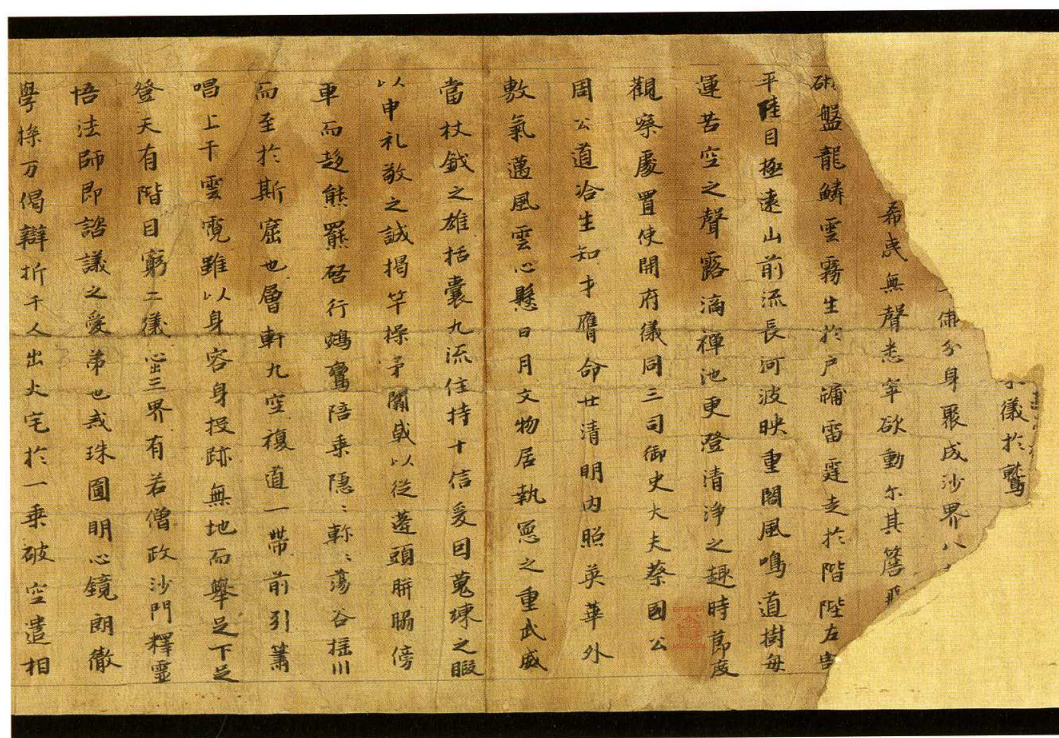 儀於鷲
分身聚成沙界八
希夷無聲悉窣欲動尔其簷飛
盤龍鱗雲霧生於户牖雷霆走於階陛左豁
平陸目極遠山前流長河波映重閣風鳴道樹每
運苦空之聲露滴禪池更澄清淨之趣時節度
觀察處置使開府儀同三司御史大夫蔡國公
周公道洽生知才膺命世清明内照英華外
敷氣邁風雲心懸日月文物居執憲之重武威
當杖鉞之雄括囊九流住持十信爰因蒐練之暇
以申礼敬之誠揭竿操矛闟戟以從蓬頭胼脇傍
車而趍熊羆啓行鵷鸞陪乘隱〻轔〻蕩谷摇川
而至於斯窟也層軒九空複道一帶前引簫
唱上干雲霓雖以身容身投跡無地而舉足下足
登天有階目窮二儀心出三界有若僧政沙門釋靈
悟法師即諮議之愛弟也戒珠圓明心鏡朗徹
學探万偈辯折千人出火宅於一乘破空遣相